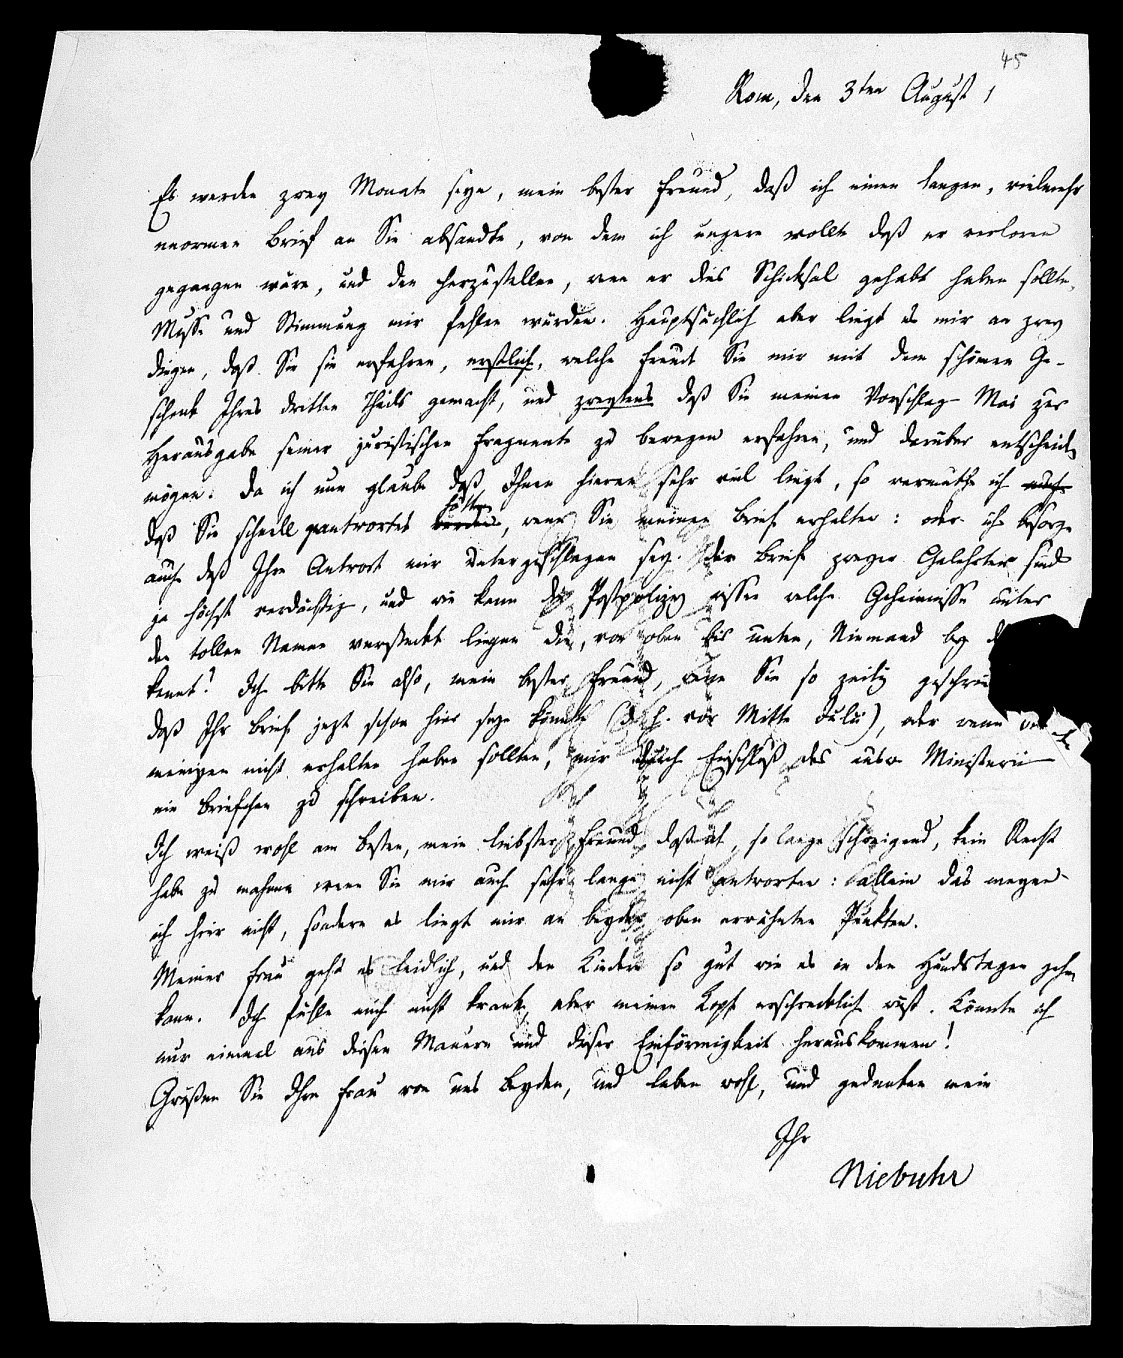 45
Rom, den 3ten August 1
Es werden zwey Monate seyn, mein bester Freund, daß ich einen langen, vielmehr
enormen Brief an Sie absandte, von dem ich ungern wollte daß er verloren
gegangen wäre, und den herzustellen, wenn er dies Schicksal gehabt haben sollte,
Musse und Stimmung mir fehlen würden. Hauptsächlich aber liegt es mir an zwey
dingen, daß Sie sie erfahren, erstlich, welche Freude Sie mir mit dem schönen Ge-
schenk Ihres dritten Theils gemacht, und zweytens daß Sie meinen Vorschlag Mai zur
Herausgabe seiner juristischen Fragmente zu bewegen erfahren, und darüber entscheiden
mögen. Da ich nun glaube daß Ihnen hieran sehr viel liegt, so vermuthe ich
daß Sie schnell geantwortet hätten, wenn Sie meinen Brief erhalten: oder ich besorge
auch daß Ihre Antwort mir untergeschlagen sey. Die Briefe zweyer Gelehrter sind
ja höchst verdächtig, und wie kann die Postpolizey wissen welche Geheimnisse unter
den tollen Namen versteckt liegen die, von oben bis unten, Niemand bey
kennt? Ich bitte Sie also, mein bester Freund, wenn Sie so zeitig geschrie
daß Ihr Brief jezt schon hier seyn könnte (d. h. vor Mitte Juli), oder wenn
meinigen nicht erhalten haben sollten, mir durch Einschluß des Ministerii
ein Briefchen zu schreiben.
Ich weiß wohl am besten, mein liebster Freund, daß, so lange schweigend, kein Recht
habe zu mahnen wenn Sie mir auch sehr lange nicht antworten: allein das meyne
ich hier nicht, sondern es liegt mir an beyden oben erwähnten Punkten.
Meiner Frau geht es leidlich, und den Kindern so gut wie es in den Hundstagen gehen
kann. Ich fühle mich nicht krank, aber meinen Kopf erschrecklich wüst. Könnte ich
nur einmal aus diesen Mauern und dieser Einförmigkeit herauskommen!
Grüßen Sie Ihre Frau von uns beyden, und leben wohl, und gedenken mein
Ihr
Niebuhr